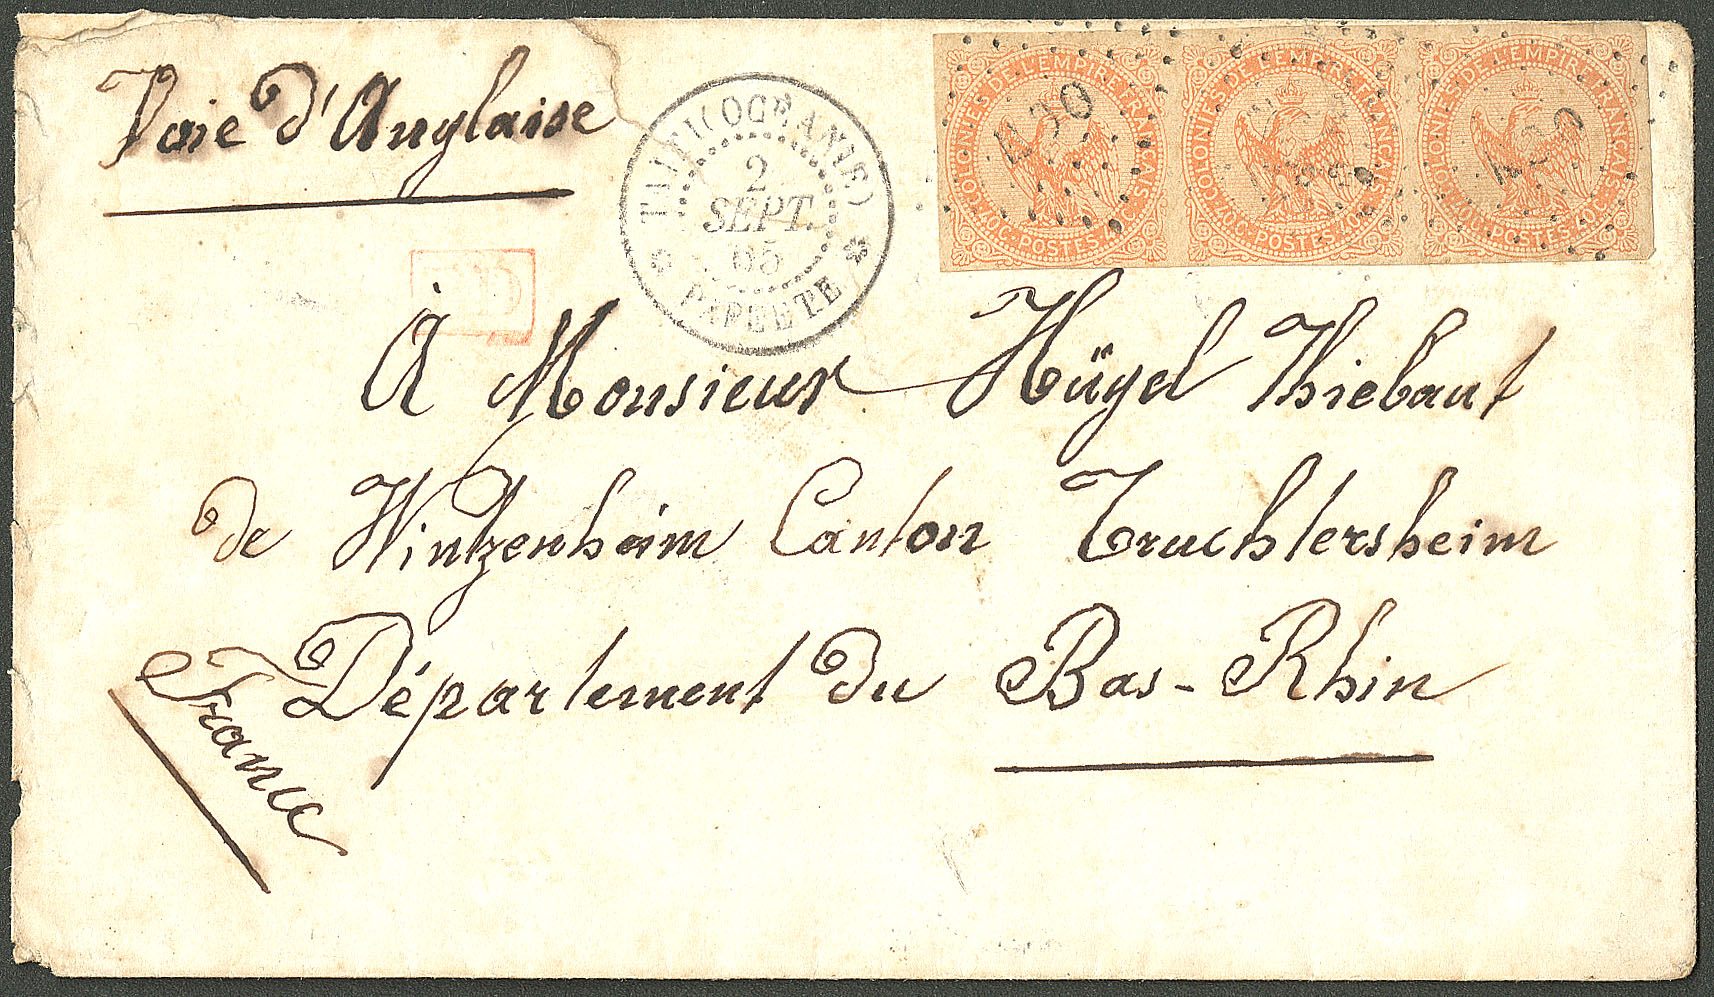 Voie d'Anglaise
TAITI (OCÉANIE)
2
SEPT.
65
PAPEETE
COLONIES DE L'EMPIRE FRANÇAIS
40C. POSTES 40C.
COLONIES DE L'EMPIRE FRANÇAIS
40C. POSTES 40C.
COLONIES DE L'EMPIRE FRANÇAIS
40C. POSTES 40C.
À Monsieur Hügel Thiebaut
de Wintzenheim Canton Truchtersheim
Département du Bas-Rhin
France